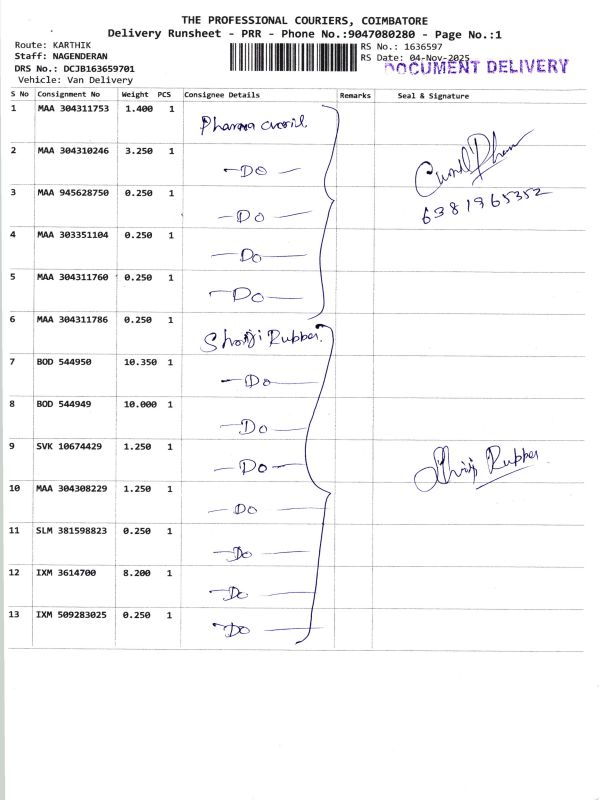 THE PROFESSIONAL COURIERS, COIMBATORE
Delivery Runsheet - PRR - Phone No.:9047080280 - Page No.:1
Route: KARTHIK
Staff: NAGENDERAN
DRS No.: DCJB163659701
Vehicle: Van Delivery
RS No.: 1636597
RS Date: 04-Nov-2025
DOCUMENT DELIVERY
S No Consignment No Weight PCS Consignee Details Remarks Seal & Signature
1 MAA 304311753 1.400 1 Pharma
2 MAA 304310246 3.250 1 -Do-
3 MAA 945628750 0.250 1 -Do-
6381965352
4 MAA 303351104 0.250 1 -Do-
5 MAA 304311760 0.250 1 -Do-
6 MAA 304311786 0.250 1 Rubber.
7 BOD 544950 10.350 1 -Do-
8 BOD 544949 10.000 1 -Do-
9 SVK 10674429 1.250 1 -Do- Rubber
10 MAA 304308229 1.250 1 -Do-
11 SLM 381598823 0.250 1 -Do-
12 IXM 3614700 8.200 1 -Do-
13 IXM 509283025 0.250 1 -Do-